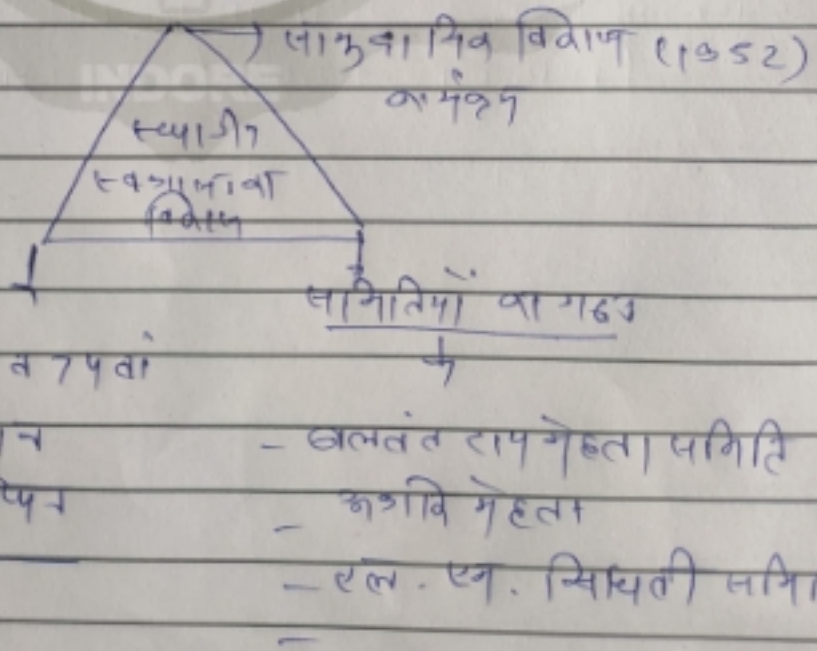 INDORE
सामुदायिक विकास (1952)
कार्यक्रम
स्थानीय
स्वशासन का
विकास
समितियों का गठन
व 74वां
न
- बलवंत राय मेहता समिति
- अशोक मेहता
- एल. एम. सिंघवी समि
-